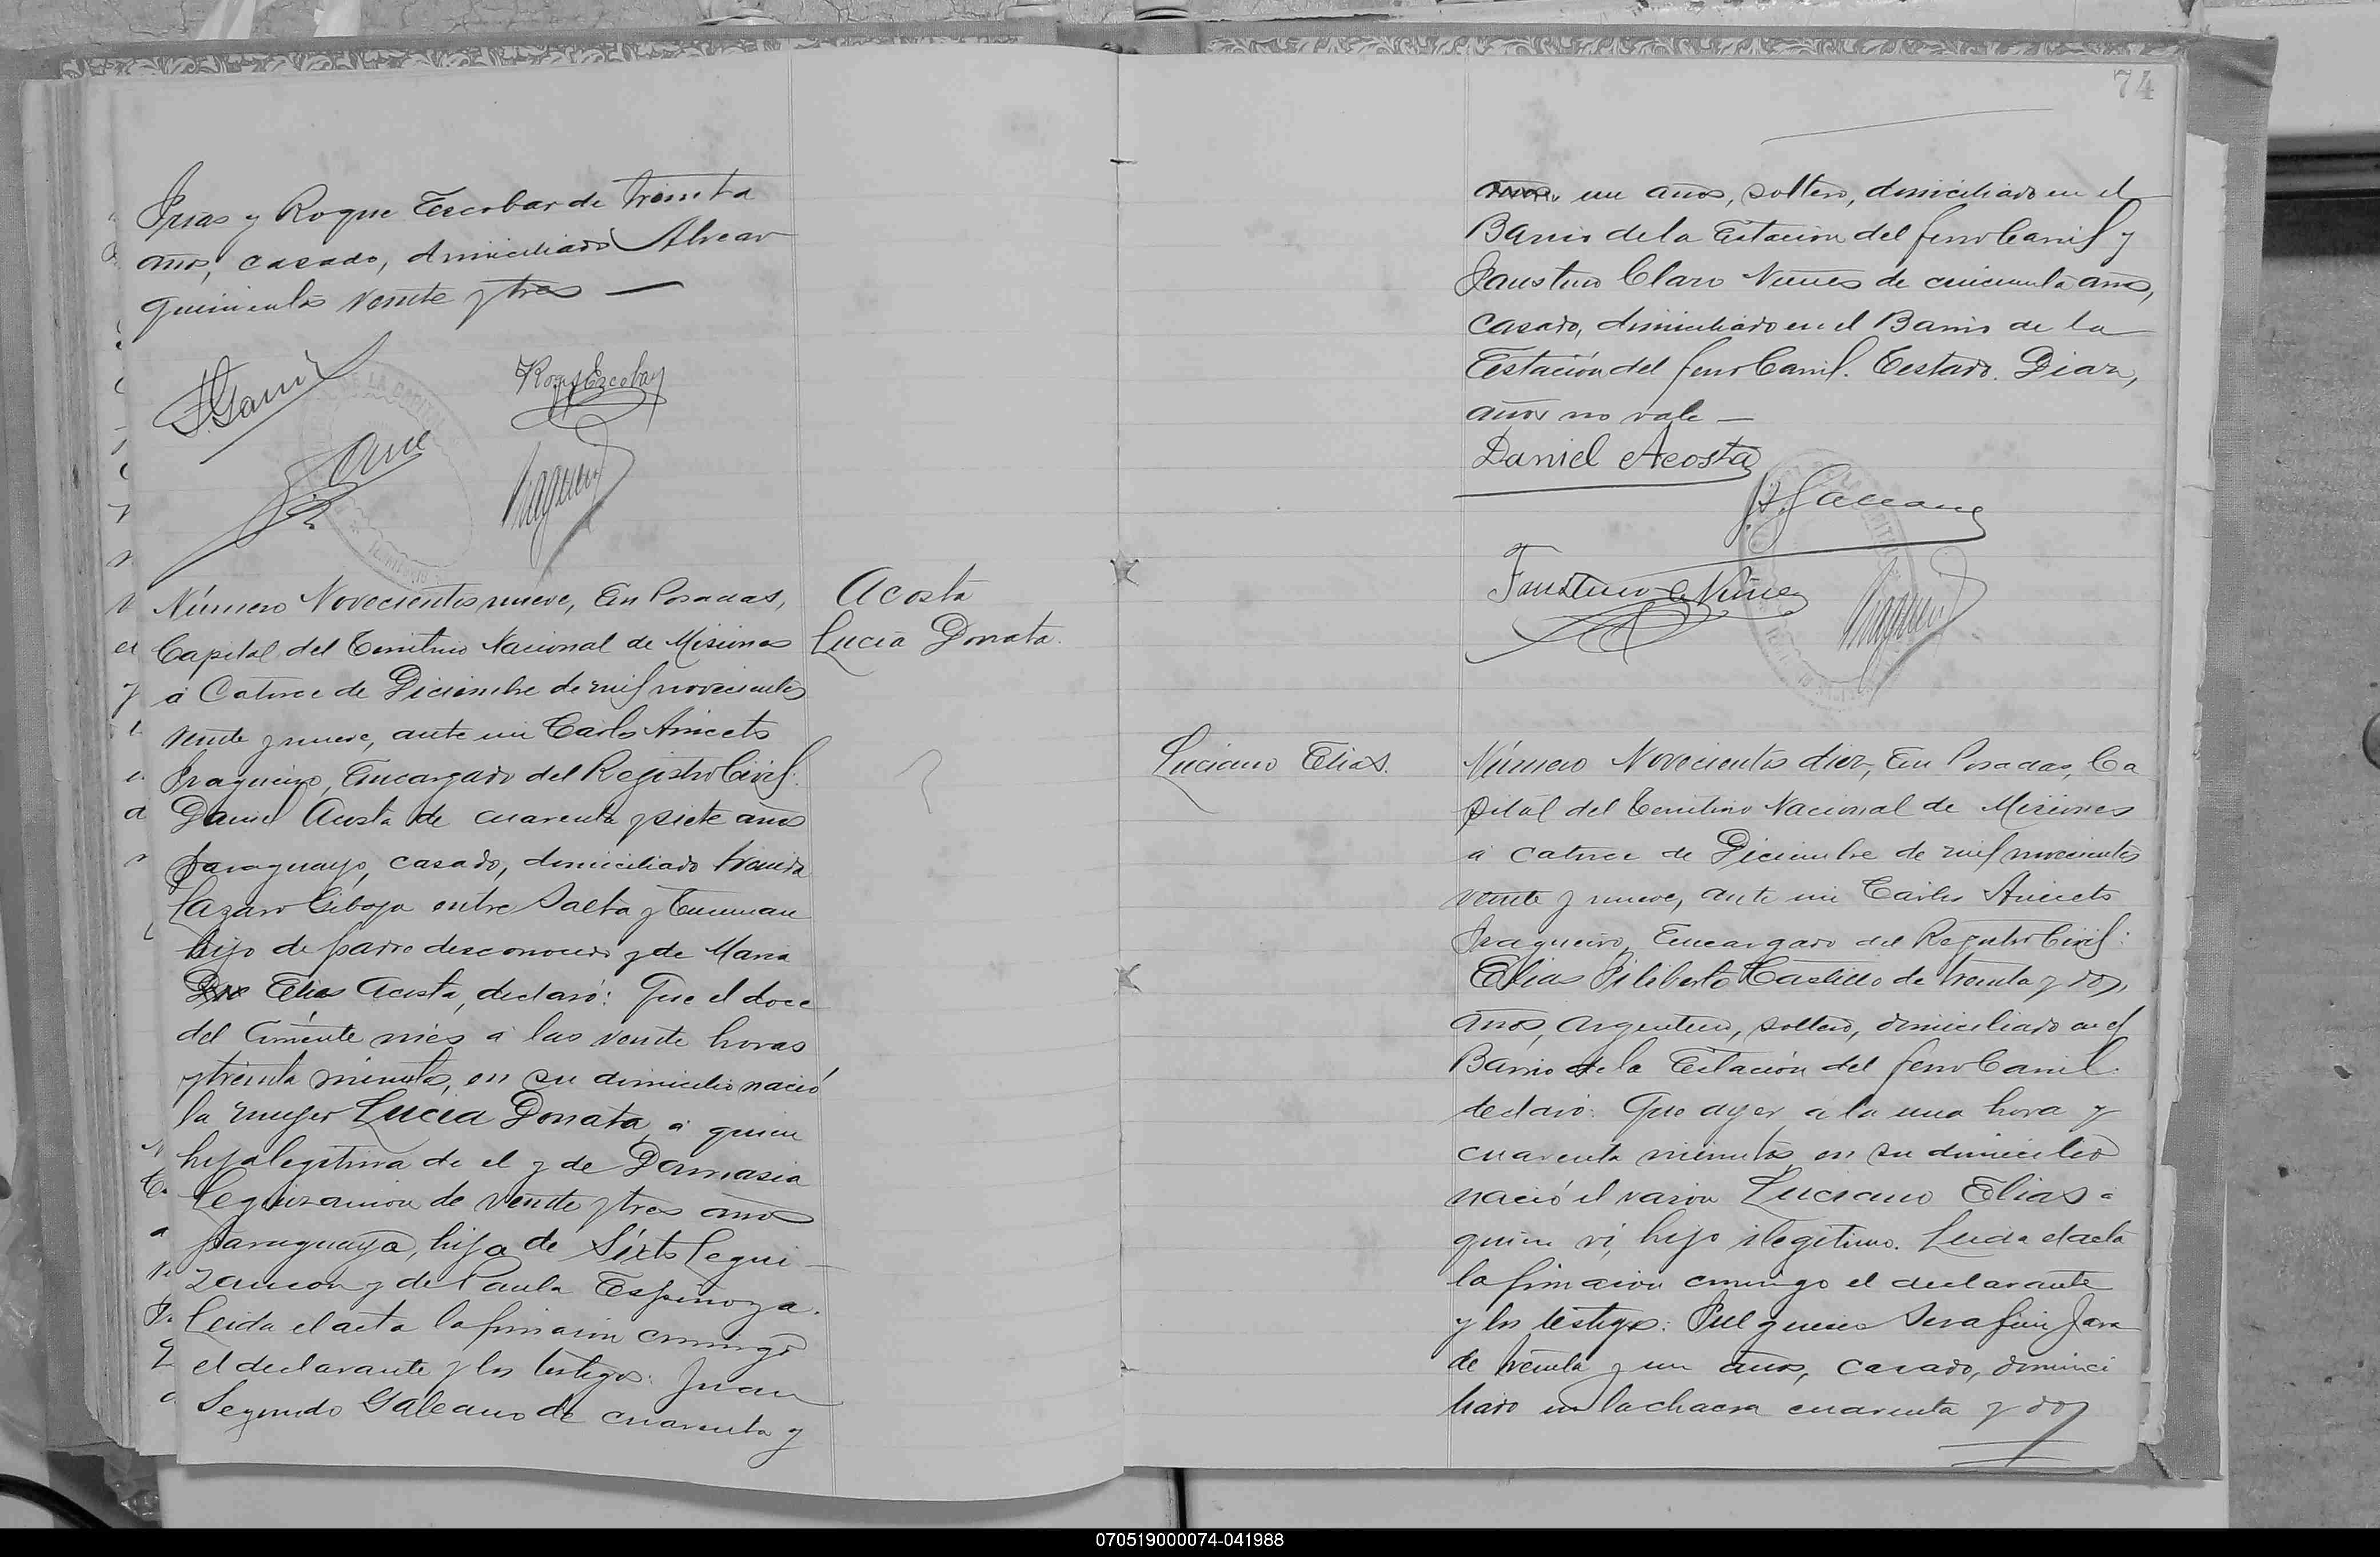 Frias y Roque Escobar de treinta
años, casado, domiciliado Alvear
quinientos veinte y tres —
Roque Escobar
Número Novecientos nueve, En Posadas,
Capital del Territorio Nacional de Misiones
á Catorce de Diciembre de mil novecientos
veinte y nueve, ante mi Carlos Aniceto
Fragueiro, Encargado del Registro Civil:
Daniel Acosta de cuarenta y siete años
paraguayo, casado, domiciliado
Lazaro Gibaja entre Salta y Tucuman
hijo de padre desconocido y de Maria
Elias Acosta, declaró: Que el doce
del corriente mes á las veinte horas
y treinta minutos, en su domicilio nació
la mujer Lucia Donata, á quien
hija legitima de el y de Damasia
Leguizamon de veinte y tres años
paraguaya, hija de Sixto Legui-
zamon y de Paula Espinoza.
Leida el acta la firmaron conmigo
el declarante y los testigos: Juan
Segundo Galeano de cuarenta y
Acosta
Lucia Donata.
74
un años, soltero, domiciliado en el
Barrio de la Estacion del ferro Carril y
Faustino Claro Nunes de cincuenta años,
casado, domiciliado en el Barrio de la
Estación del ferro Carril. Testado. Dias,
años no vale —
Daniel Acosta
J. S. Galeano
Faustino C Nuñes
Luciano Elias.
Número Novecientos diez, En Posadas, Ca
pital del Territorio Nacional de Misiones
á catorce de Diciembre de mil novecientos
veinte y nueve, ante mi Carlos Aniceto
Fragueiro, Encargado del Registro Civil:
Elias Filiberto Castillo de treinta y dos,
años, argentino, soltero, domiciliado en el
Barrio de la Estación del ferro Carril.
declaró: Que ayer á la una hora y
cuarenta minutos en su domicilio
nació el varon Luciano Elias á
quien vi, hijo ilegitimo. Leida el acta
la firmaron conmigo el declarante
y los testigos: Fulgencio Serafin Jara
de treinta y un años, casado, domici
liado en la chacra cuarenta y dos
070519000074-041988